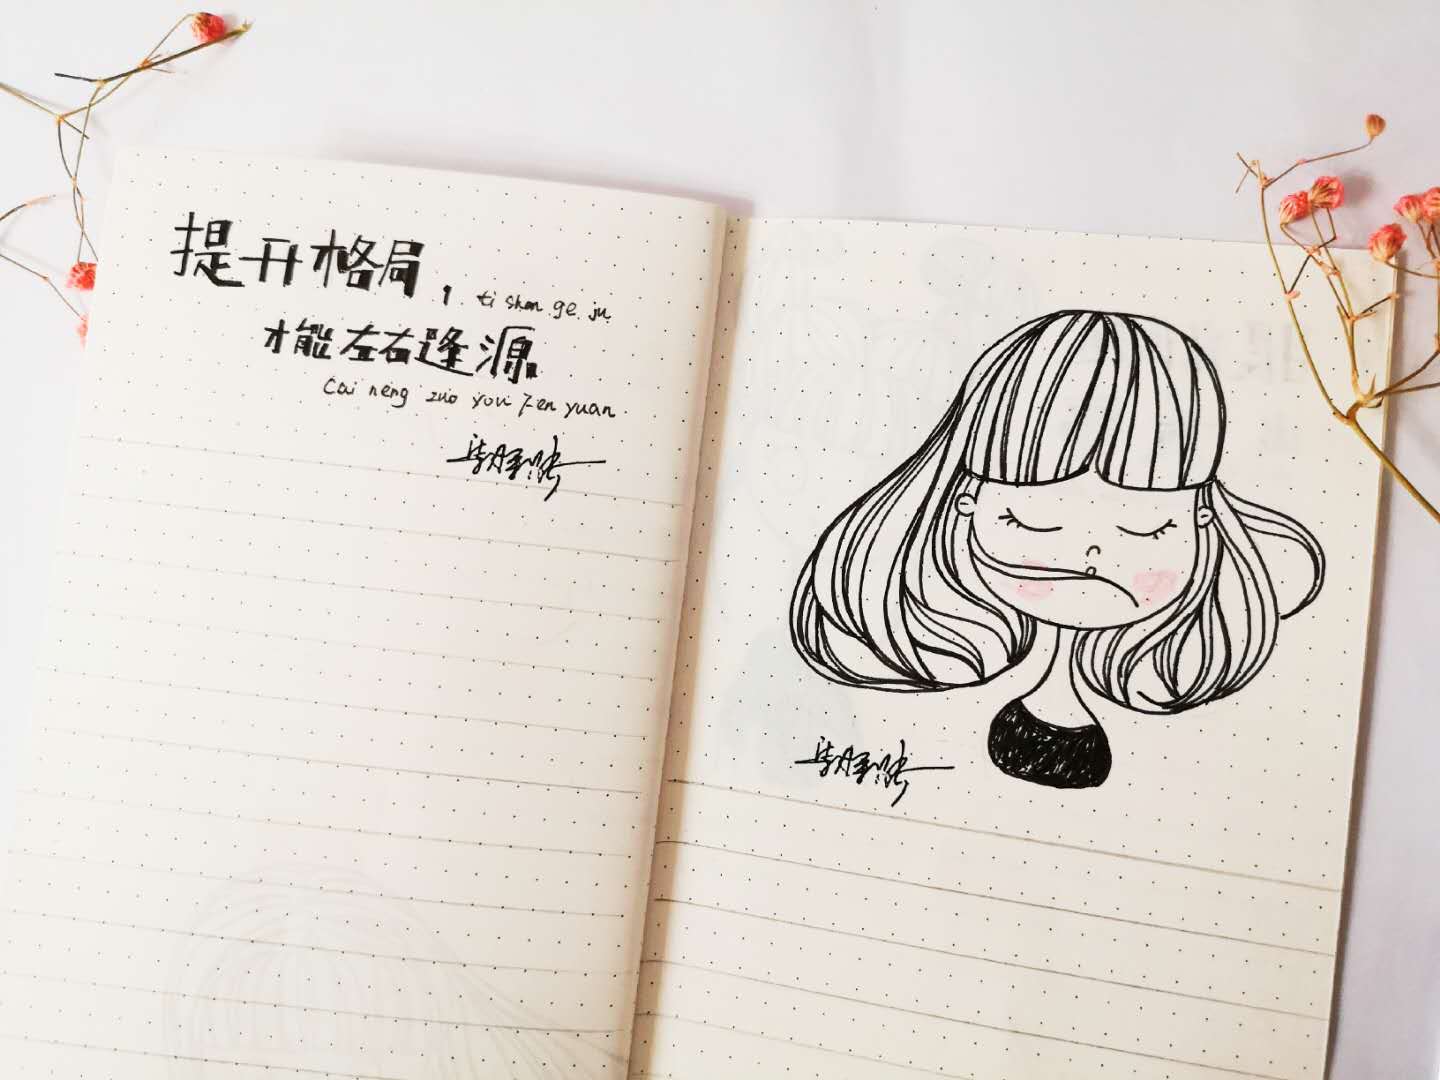 提升格局，
ti shen ge ju
才能左右逢源
cai neng zuo you fen yuan